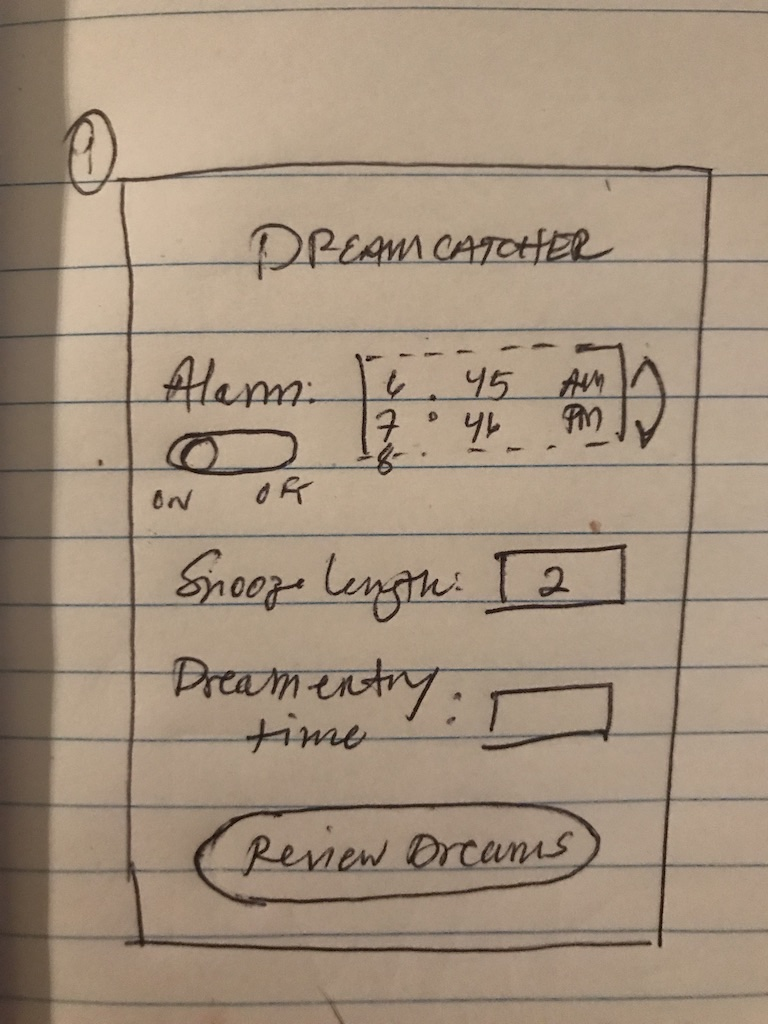 1
DREAMCATCHER
Alarm: 6 : 45 AM
7 : 46 PM
8
ON OFF
Snooze length: 2
Dream entry :
time
Review Dreams